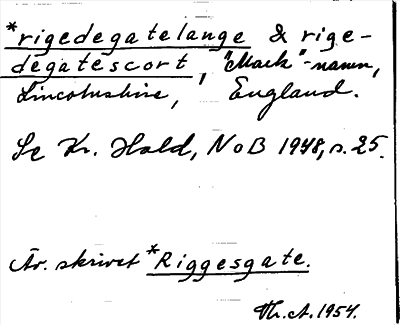 *rigedegatelange & rige-
degatescort, "Mark"-namn,
Lincolnshire, England.
Se Kr. Hald, NoB 1948, s. 25.
Är. skrivet *Riggesgate.
Th. A. 1954.